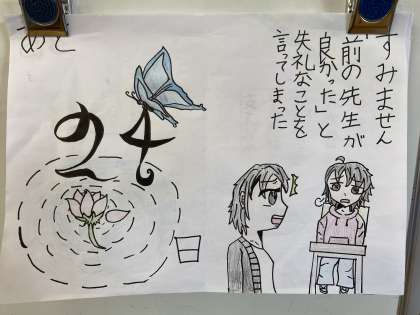 あと
24
日
すみません
前の先生が
良かった」と
失礼なことを
言ってしまった